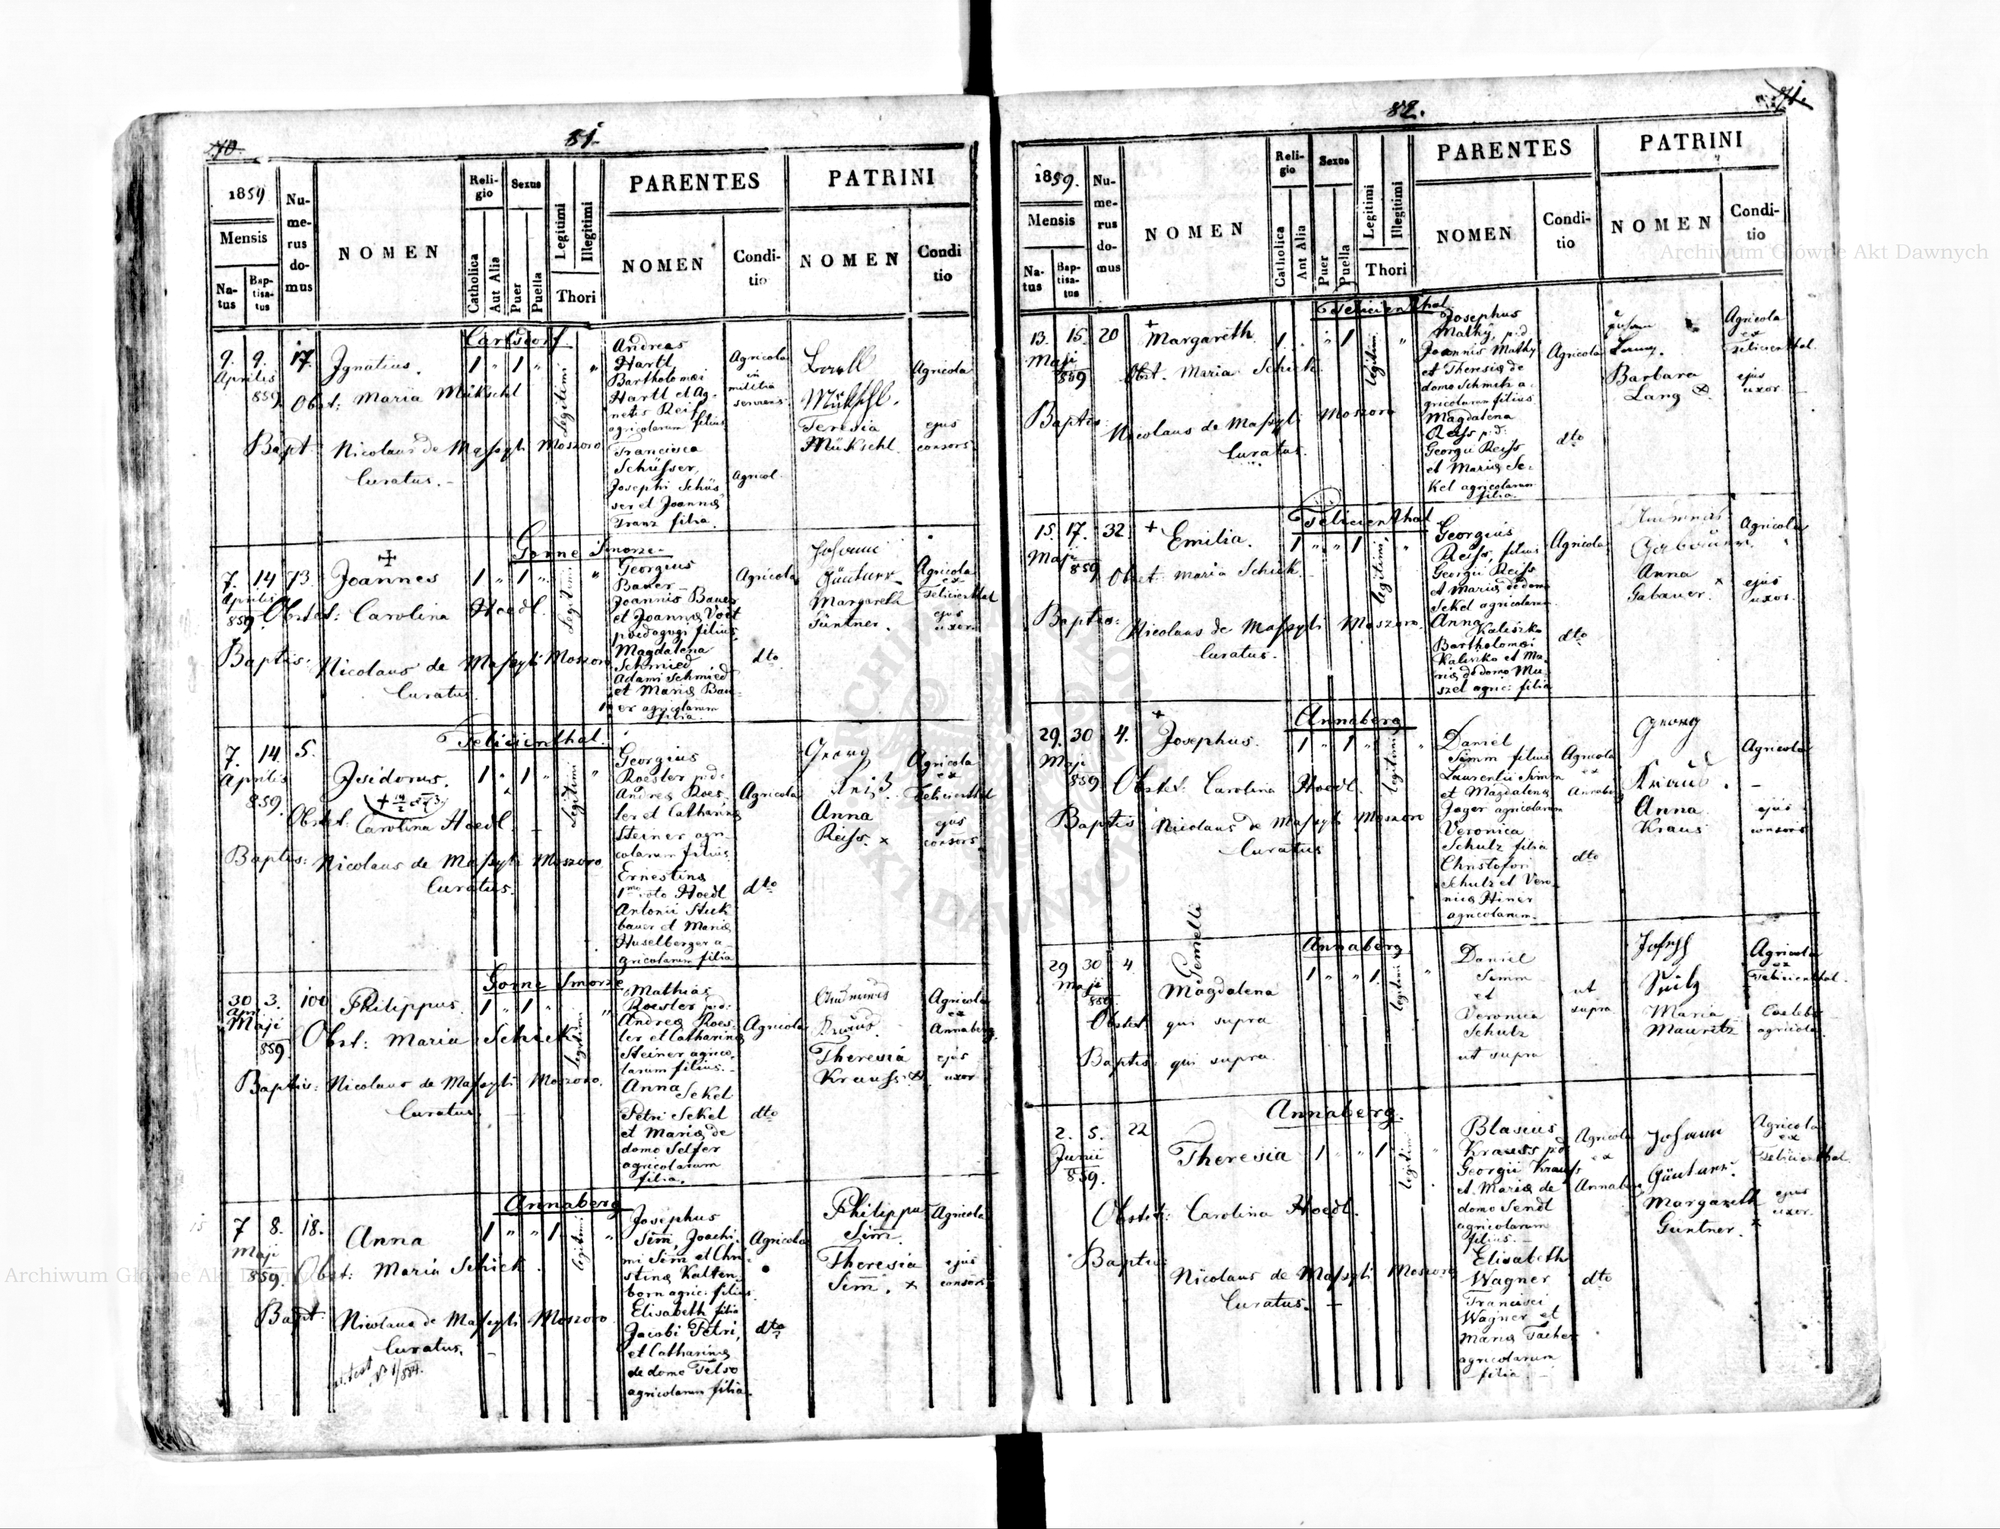 70.
81.
1859
Mensis
Na-
tus
Bap-
tisa-
tus
Nu-
me-
rus
do-
mus
NOMEN
Reli-
gio
Catholica
Aut Alia
Sexus
Puer
Puella
Legitimi
Illegitimi
Thori
PARENTES
NOMEN
Condi-
tio
PATRINI
NOMEN
Condi
tio
Carlsdorf
9. 9. 17. Ignatius. 1 " 1 " legitimi "
Aprilis
859.
Obst: Maria Mükschl
Bapt: Nicolaus de Massyli Moszoro
Curatus. -
Andreas
Hartl
Bartholomæi
Hartl et Ag-
netis Reif
agricolarum filius
Francisca
Schüsser,
Josephi Schüs
ser et Joannæ
Franz filia.
Agricola
in
militia
serviens.
Agricol.
Mükschl.
Teresia
Mükschl.
Agricola
ejus
consors
Gorne Smorze.
7. 14 73. Joannes 1 " 1 " Legitimi "
Aprilis
859.
Obstet: Carolina Hoedl.
Baptis: Nicolaus de Massyli Moszoro
Curatus.
Georgius
Bauer
Joannis Bauer
et Joannæ Voit
pædagogi filius
Magdalena
Schmied
Adami Schmied
et Mariæ Bau-
er agricolarum
filia.
Agricola
dto
Johann
Güntner
Margareta
Güntner.
Agricola
ex
Felicienthal
ejus
uxor
Felicienthal.
7. 14. 5. Jsidorus. 1 " 1 " Legitimi "
Aprilis
859.
Obstet: Carolina Hoedl.
Baptis: Nicolaus de Massyli Moszoro
Curatus.
Georgius
Roesler p:d:
Andreæ Roes-
ler et Catharinæ
Steiner agri-
colarum filius.
Ernestina
1mo voto Hoedl
Antonii Steck
bauer et Mariæ
Huselberger a-
gricolarum filia
Agricola
dto
Georg
Anna
Reiss. x
Agricola
ex
Felicienthal
ejus
consors.
Gorne Smorze
30 3. 100 Philippus. 1 " 1 " legitimi "
Apr.
Maji
859.
Obst: Maria Schick
Baptis: Nicolaus de Massyli Moszoro.
Curatus.
Mathias
Roesler p:d:
Andreæ Roes-
ler et Catharinæ
Steiner agrico-
larum filius.-
Anna
Sekel
Petri Sekel
et Mariæ de
domo Selfer
agricolarum
filia.
Agricola
dto
Kraus
Theresia
Krauss x
Agricola
ex
Annaberg.
ejus
uxor
Annaberg
7 8. 18. Anna 1 " " 1 legitimi "
Maji
859.
Obst: Maria Schick.
Bapt: Nicolaus de Massyli Moszoro.
Curatus.
Josephus
Sim̄, Joachi-
mi Sim̄ et Chri-
stinæ Kalten-
born agric: filius
Elisabeth filia
Jacobi Petri,
et Catharinæ
de domo Telso
agricolarum filia
Agricola
dto
Philippus
Sim̄.
Theresia
Sim̄. x
Agricola
ejus
consors
82.
71.
1859.
Mensis
Na-
tus
Bap-
tisa-
tus
Nu-
me-
rus
do-
mus
NOMEN
Reli-
gio
Catholica
Ant Alia
Sexus
Puer
Puella
Legitimi
Illegitimi
Thori
PARENTES
NOMEN
Condi-
tio
PATRINI
NOMEN
Condi-
tio
Felicienthal
13. 15. 20 Margareth 1 " " 1 legitimi "
Maji
859
Obst. Maria Schick.
Baptis: Nicolaus de Massyli Moszoro
Curatus.
Josephus
Mathÿ, p:d:
Joannis Mathÿ
et Theresiæ de
domo Schmitz a-
gricolarum filius
Magdalena
Reiss p:d:
Georgii Reiss
et Mariæ Se-
kel agricolarum
filia.
Agricola
dto
Johann
Lang.
Barbara
Lang x.
Agricola
ex
Felicienthal.
ejus
uxor.
Felicienthal
15. 17. 32. Emilia. 1 " " 1 legitimi "
Maji
859
Obstet: Maria Schick.
Baptis: Nicolaus de Massyli Moszoro.
Curatus.
Georgius
Reiss, filius
Georgii Reiss
et Mariæ de domo
Sekel agricolarum.
Anna
Kaliszko
Bartholomæi
Kaliszko et Ma-
riæ de domo Mu-
szel agric: filia
Agricola
dto
Gabauer.
Anna x
Gabauer.
Agricola
ejus
uxor.
Annaberg
29. 30 4. Josephus. 1 " 1 " legitimi "
Maji
859
Obstet: Carolina Hoedl.
Baptis: Nicolaus de Massyli Moszoro
Curatus
Daniel
Simm filius
Laurentii Simm
et Magdalenæ
Jager agricolarum
Veronica
Schulz filia
Christofori
Schulz et Vero-
nicæ Hiner
agricolarum.
Agricola
ex
Annaberg
dto
Georg
Kraus.
Anna
Kraus
Agricola
ejus
consors
Annaberg
29 30 4. Gemelle
Maji
859.
Magdalena 1 " " 1. legitimi "
Obstet qui supra
Baptis: qui supra
Daniel
Simm
et
Veronica
Schulz
ut supra
ut
supra
Joseph
Maria
Mauritz
Agricola
ex
Felicienthal.
Coelebs
agricola.
Annaberg.
2. 5. 22 Theresia 1 " " 1 legitimi "
Junii
859.
Obstet: Carolina Hoedl.
Baptis: Nicolaus de Massyli Moszoro
Curatus. -
Blasius
Krauss p:d:
Georgii Krauss
et Mariæ de
domo Sendl
agricolarum
filius. -
Elisabeth
Wagner
Francisci
Wagner et
Mariæ Tacher
agricolarum
filia. -
Agricola
ex
Annaberg
dto
Johann
Güntner.
Margareth
Guntner. x
Agricola
ex
Felicienthal.
ejus
uxor.
Archiwum Główne Akt Dawnych
Archiwum Główne Akt Dawnych
ARCHIWUM GŁÓWNE AKT DAWNYCH